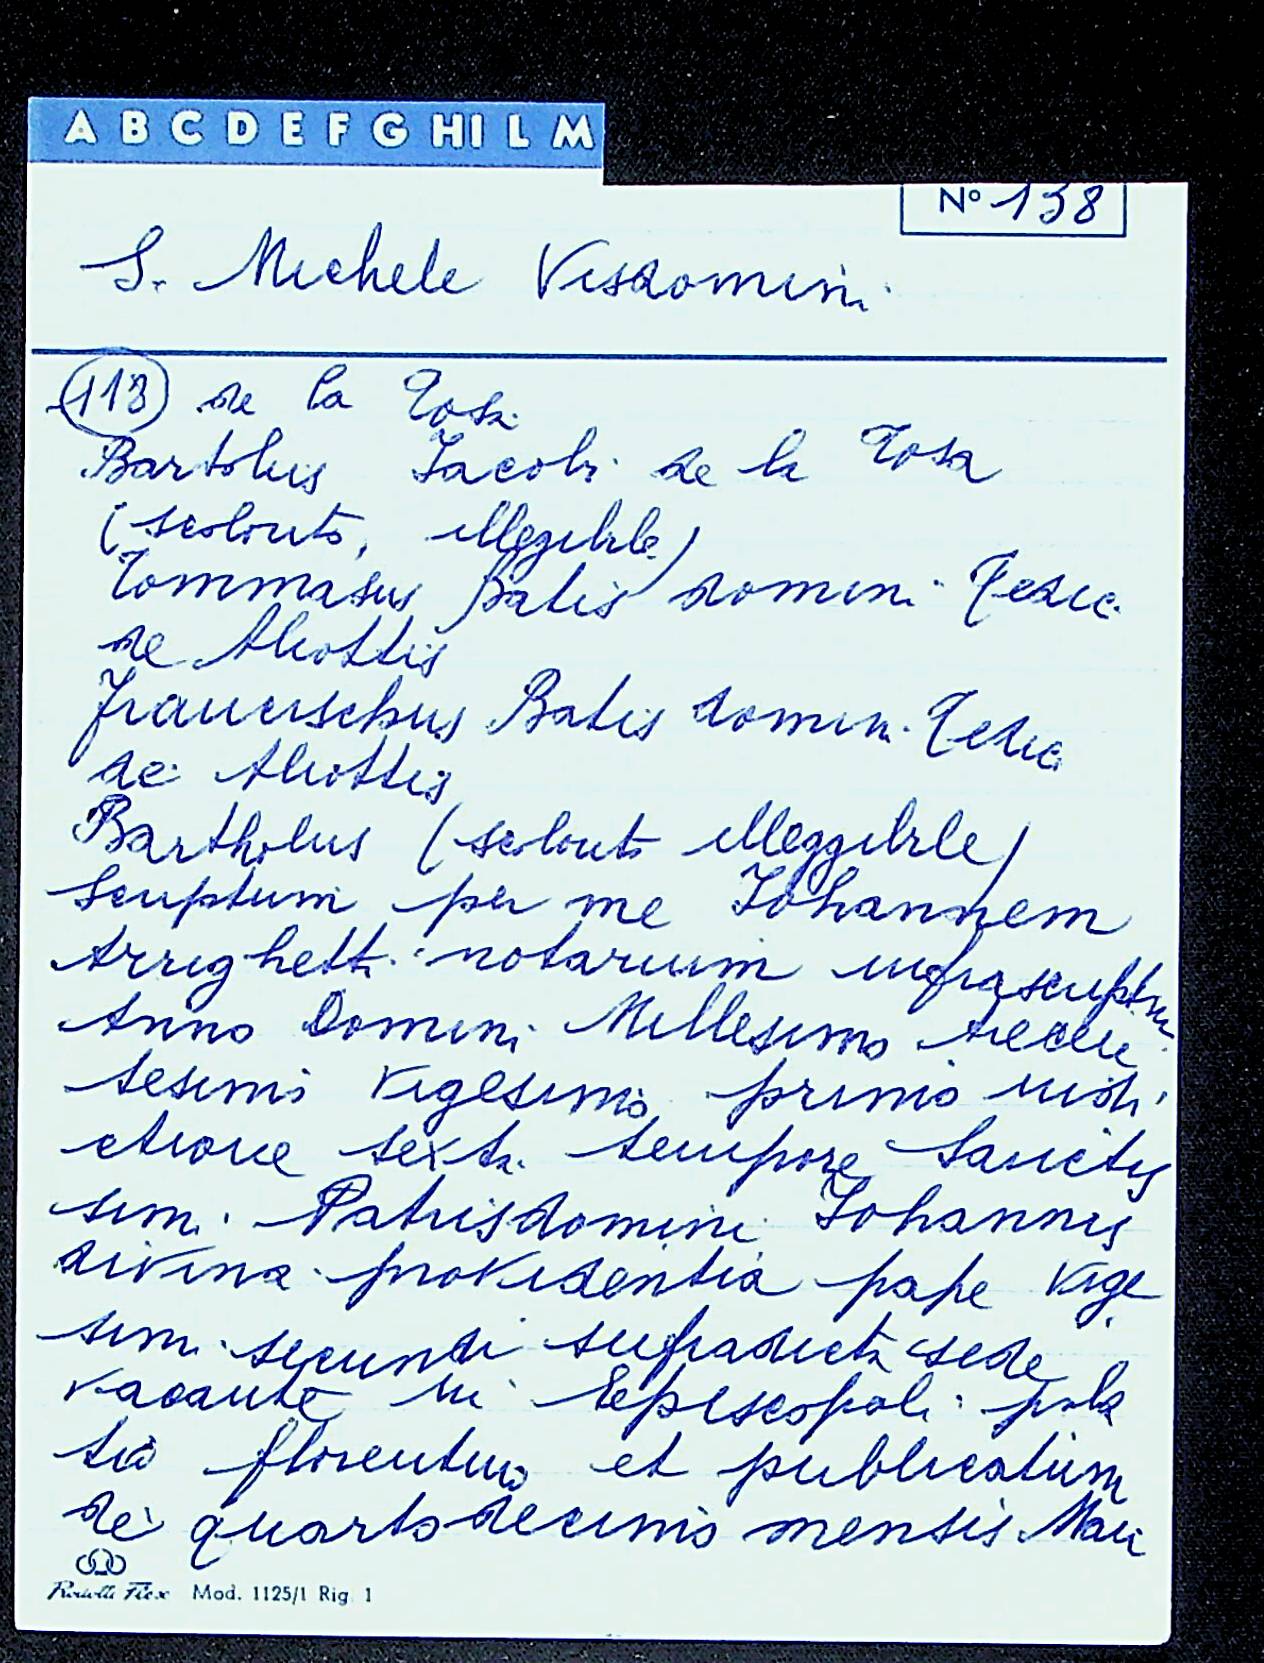 A B C D E F G HI L M
Nº 138
S. Michele Visdomini
113 de la Tosa
Bartolus Jacobi de la Tosa
(scolorito, illeggibile)
Tommasus Batis domini Tedic
de Aliottis
Francischus Batis domini Tedic
de Aliottis
Bartholus (scolorito illeggibile)
Scriptum per me Johannem
Arrighetti notarium infrascriptum
Anno Domini Millesimo trecen
tesimo vigesimo primo indi
ctione sexta tempore Sanctis
simi Patris domini Johannis
divina providentia pape vige
simi secundi supradicta sede
vacante in Episcopali pala
tio florentino et publicatum
die quartodecimo mensis Maii
Mod. 1125/1 Rig. 1